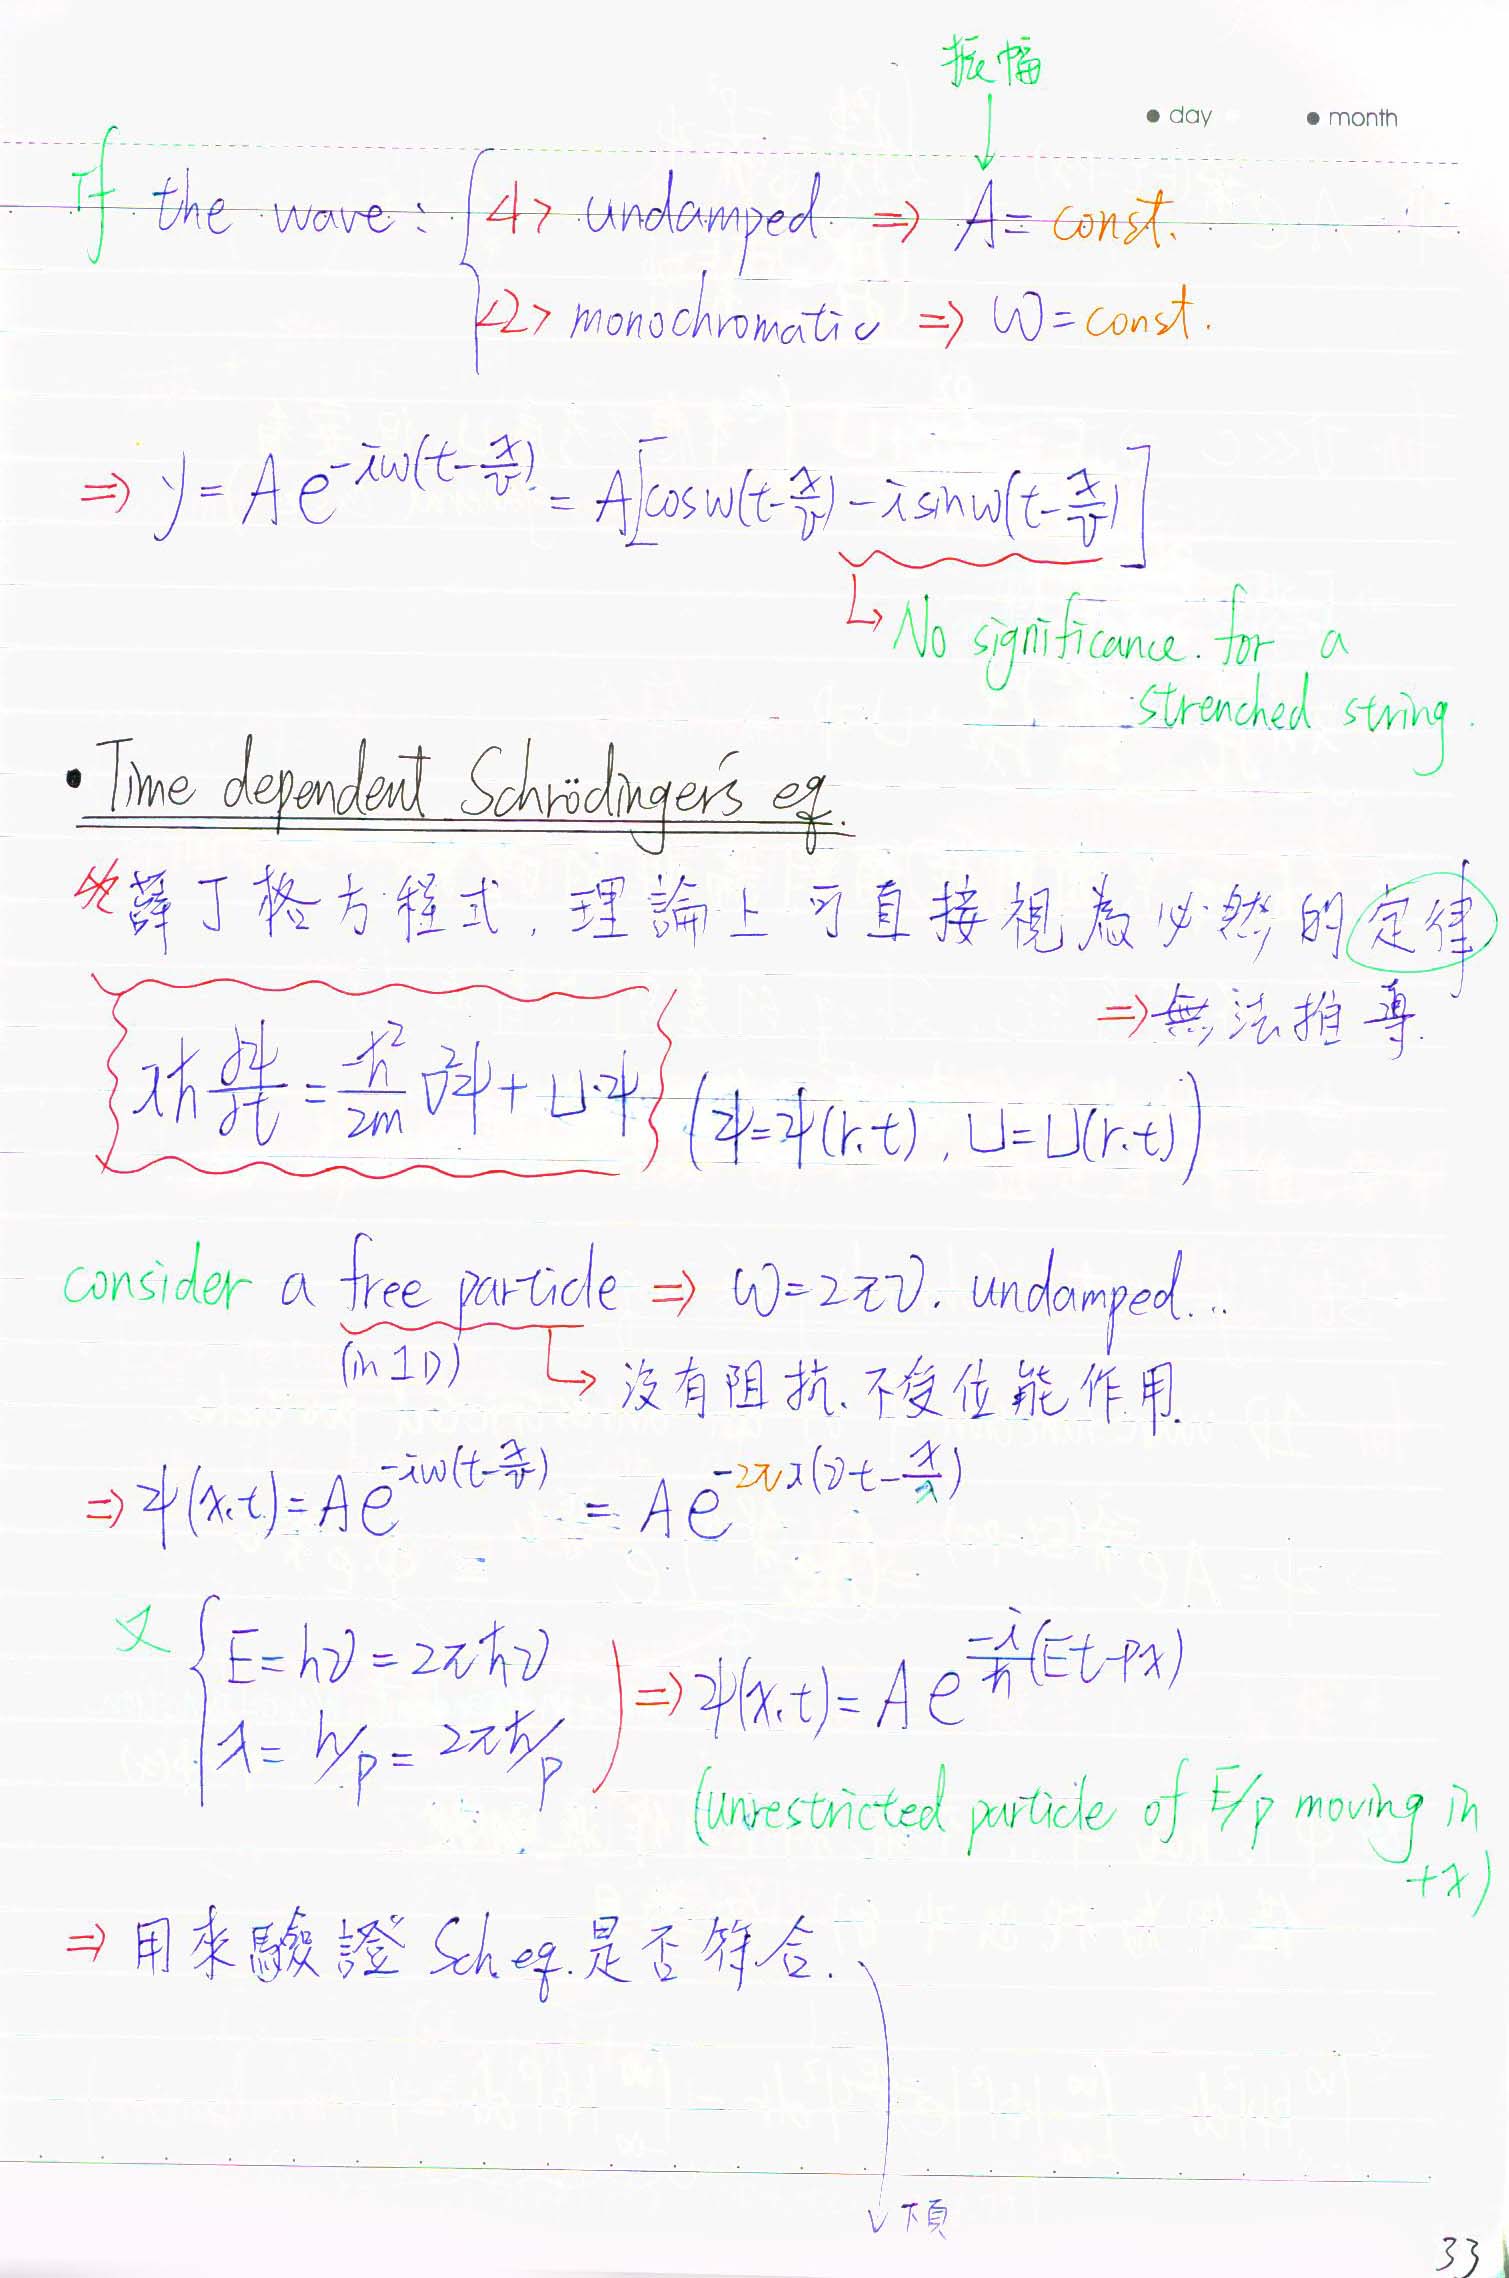 振幅
● day ● month
If the wave: <1> undamped ⇒ A = const.
<2> monochromatic ⇒ ω = const.
⇒ y = A e^{-iω(t-x/v)} = A[cosω(t-x/v) - i sinω(t-x/v)]
↳ No significance. for a
strenched string.
• Time dependent Schrödinger's eq.
※ 薛丁格方程式, 理論上可直接視為必然的定律
⇒ 無法推導.
iħ ∂Ψ/∂t = -ħ²/2m ∇²Ψ + U·Ψ (Ψ=Ψ(r.t), U=U(r.t))
consider a free particle ⇒ ω=2πν. undamped...
(in 1D) ↳ 沒有阻抗.不受位能作用.
⇒ Ψ(x.t) = A e^{-iω(t-x/v)} = A e^{-2πi(νt-x/λ)}
又 { E=hν=2πħν
λ = h/p = 2πħ/p ) ⇒ Ψ(x.t) = A e^{-i/ħ(Et-px)}
(unrestricted particle of E/p moving in
+x)
⇒ 用來驗證 Sch.eq.是否符合.
下頁
33